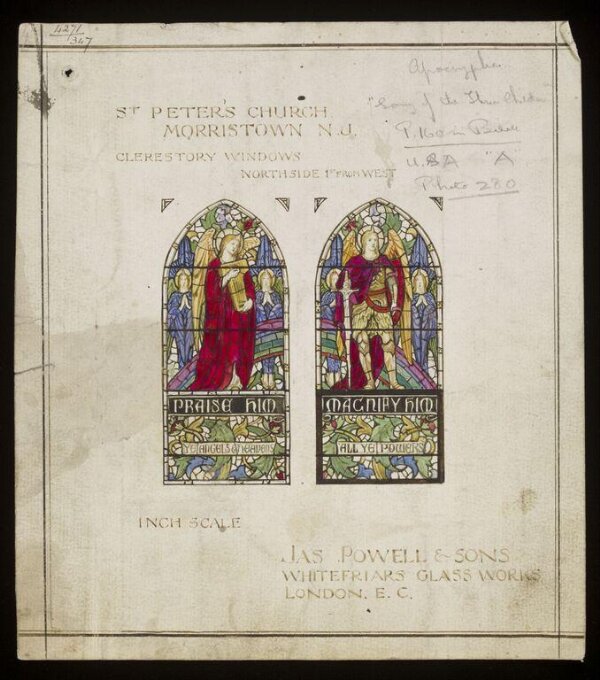 4271
347
Apocrypha
"Song of the Three Children
P. 160 in
U.S.A "A"
Photo 280
ST PETER'S CHURCH.
MORRISTOWN N.J.
CLERESTORY WINDOWS
NORTH SIDE 1ST FROM WEST
PRAISE HIM
YE ANGELS & HEAVENS
MAGNIFY HIM
ALL YE POWERS
INCH SCALE
JAS POWELL & SONS
WHITEFRIARS GLASS WORKS
LONDON. E. C.